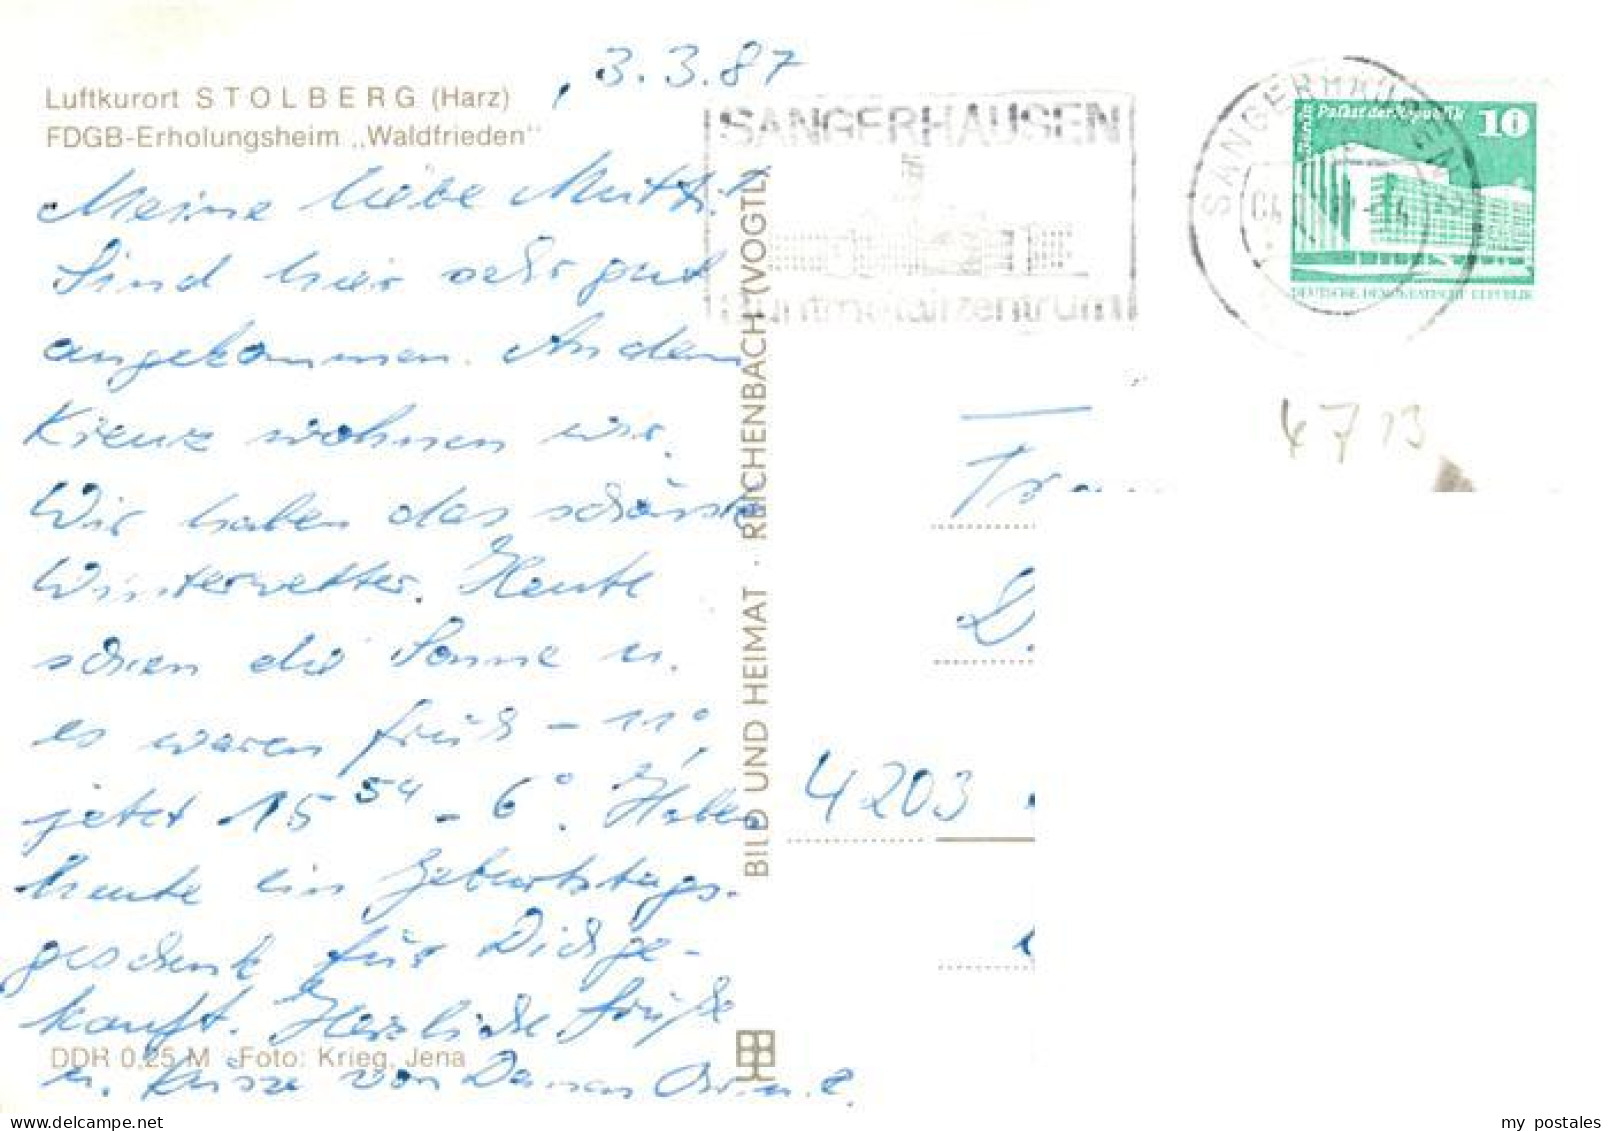 , 3.3.87
Luftkurort STOLBERG (Harz)
FDGB-Erholungsheim „Waldfrieden"
Meine liebe Mutti!
Sind hier sehr gut
angekommen. An dem
Kreuz wohnen wir.
Wir haben das schönste
Winterwetter. Heute
schien die Sonne u.
es waren früh -11°,
jetzt 15 54 - 6°. Haben
heute ein Geburtstags-
geschenk für Dich ge-
kauft. Herzliche Grüße
u. Küsse von
DDR 0,25 M Foto: Krieg, Jena
BILD UND HEIMAT · REICHENBACH (VOGTL)
SANGERHAUSEN
SANGERHAUSEN 2
Palast der Republik 10
Berlin
DEUTSCHE DEMOKRATISCHE REPUBLIK
4713
D.
4203
my postales